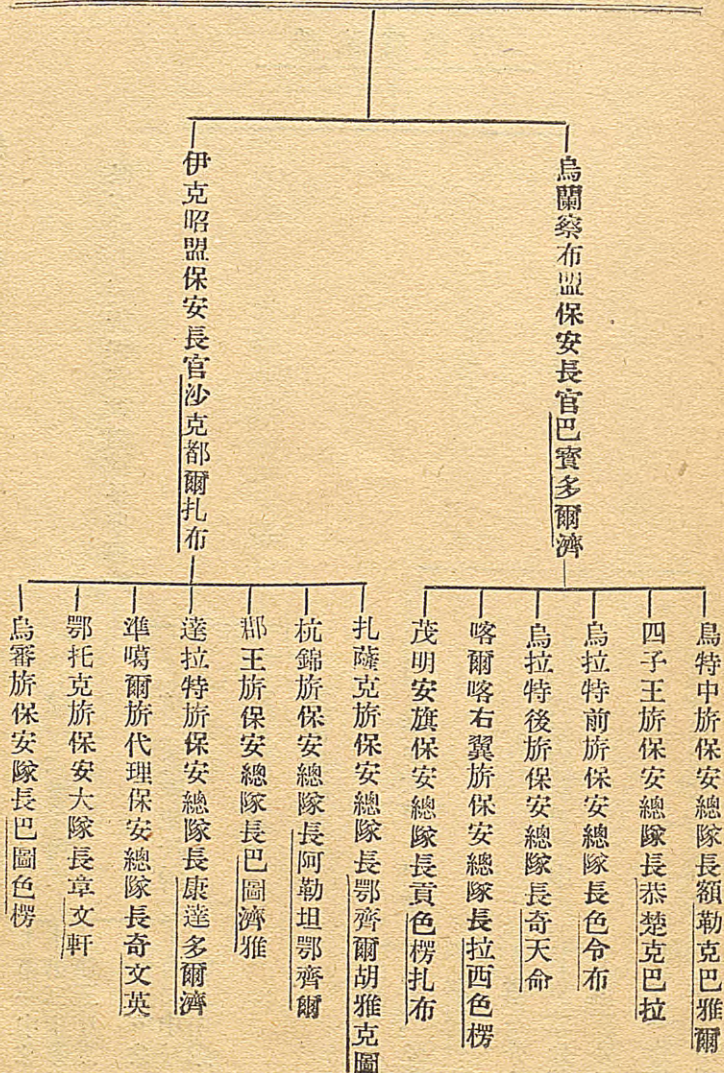 烏蘭察布盟保安長官巴寶多爾濟
烏特中旂保安總隊長額勒克巴雅爾
四子王旂保安總隊長恭楚克巴拉
烏拉特前旂保安總隊長色令布
烏拉特後旂保安總隊長奇天命
喀爾喀右翼旂保安總隊長拉西色楞
茂明安旗保安總隊長貢色楞扎布
伊克昭盟保安長官沙克都爾扎布
扎薩克旂保安總隊長鄂齊爾胡雅克圖
杭錦旂保安總隊長阿勒坦鄂齊爾
郡王旂保安總隊長巴圖濟雅
達拉特旂保安總隊長康達多爾濟
準噶爾旂代理保安總隊長奇文英
鄂托克旂保安大隊長章文軒
烏審旂保安隊長巴圖色楞